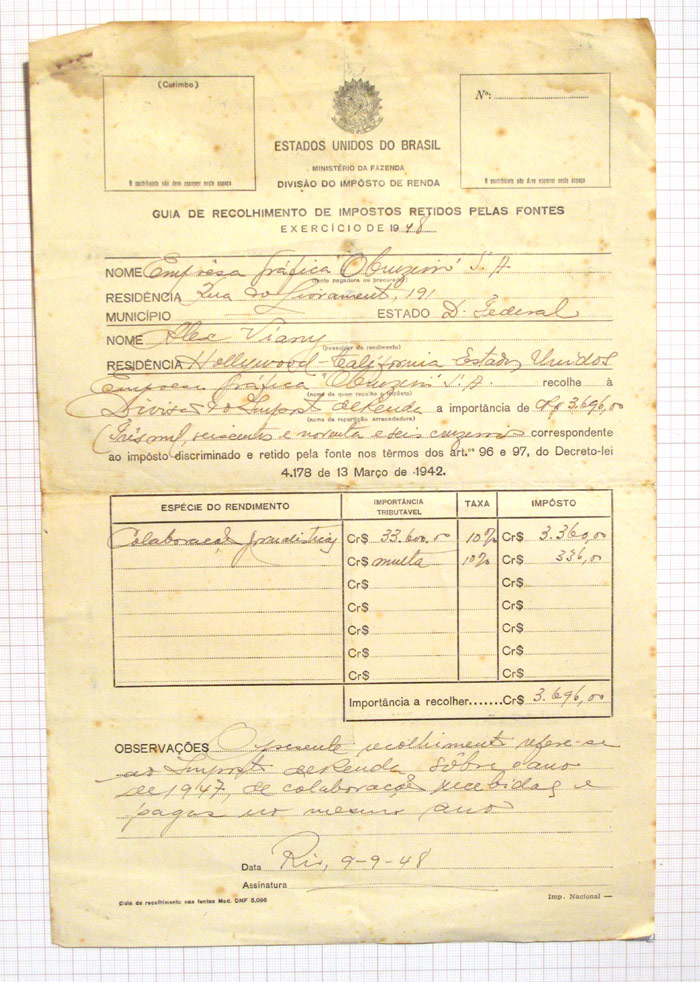 (Carimbo)
Nº:
ESTADOS UNIDOS DO BRASIL
MINISTÉRIO DA FAZENDA
O contribuinte não deve escrever neste espaço
DIVISÃO DO IMPÔSTO DE RENDA
O contribuinte não deve escrever neste espaço
GUIA DE RECOLHIMENTO DE IMPOSTOS RETIDOS PELAS FONTES
EXERCÍCIO DE 1948
NOME Emprêsa Gráfica "O Cruzeiro" S. A
(fonte pagadora ou procurador)
RESIDÊNCIA Rua do Livramento, 191
MUNICÍPIO ESTADO D. Federal
NOME Alex Viany
(possuidor do rendimento)
RESIDÊNCIA Hollywood - California Estados Unidos
Emprêsa Gráfica "O Cruzeiro" S. A. recolhe à
(nome de quem recolhe o impôsto)
Divisão do Imposto de Renda a importância de Cr$ 3.696,00
(nome da repartição arrecadadora)
(Três mil, seiscentos e noventa e seis cruzeiros correspondente
ao impôsto discriminado e retido pela fonte nos têrmos dos art.ºˢ 96 e 97, do Decreto-lei
4.178 de 13 Março de 1942.
ESPÉCIE DO RENDIMENTO IMPORTÂNCIA TRIBUTÁVEL TAXA IMPÔSTO
Colaboração jornalisticas Cr$ 33.600,00 10% Cr$ 3.360,00
Cr$ multa 10% Cr$ 336,00
Cr$ Cr$
Cr$ Cr$
Cr$ Cr$
Cr$ Cr$
Cr$ Cr$
Importância a recolher.......Cr$ 3.696,00
OBSERVAÇÕES O presente recolhimento refere-se
ao Imposto de Renda sôbre o ano
de 1947, de colaboração recebidas e
pagas no mesmo ano
Data Rio, 9-9-48
Assinatura
Guia de recolhimento nas fontes Mod. DNF 5.096
Imp. Nacional —